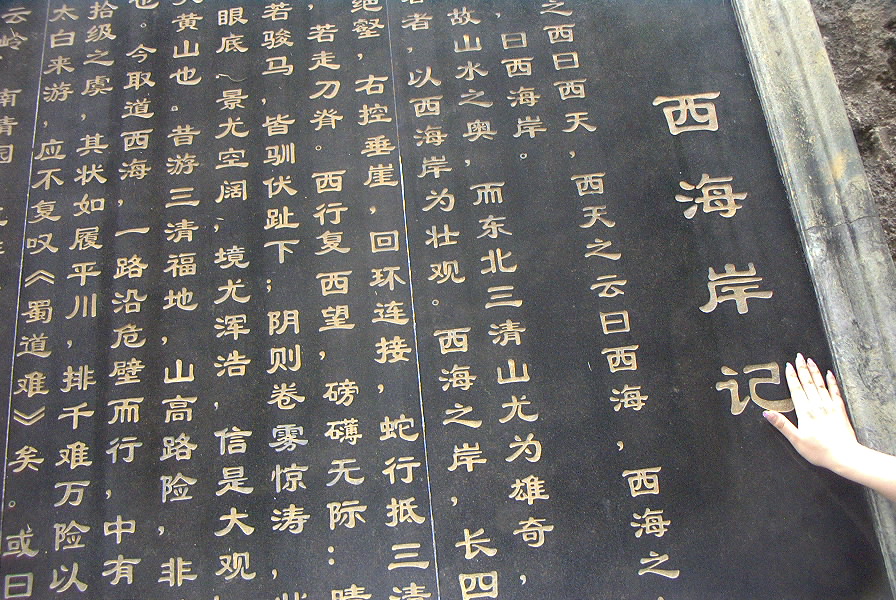 西海岸记
之西曰西天，西天之云曰西海，西海之
，曰西海岸。
故山水之奥，而东北三清山尤为雄奇，
者，以西海岸为壮观。西海之岸，长四
绝壑，右控垂崖，回环连接，蛇行抵三清
，若走刀脊。西行复西望，磅礴无际：晴
若骏马，皆驯伏趾下；阴则卷雾惊涛，
眼底～景尤空阔，境尤浑浩，信是大观，
黄山也。昔游三清福地，山高路险，非
也。今取道西海，一路沿危壁而行，中有
拾级之虞，其状如履平川，排千难万险以
太白来游，应不复叹《蜀道难》矣。或曰
云岭，南清园